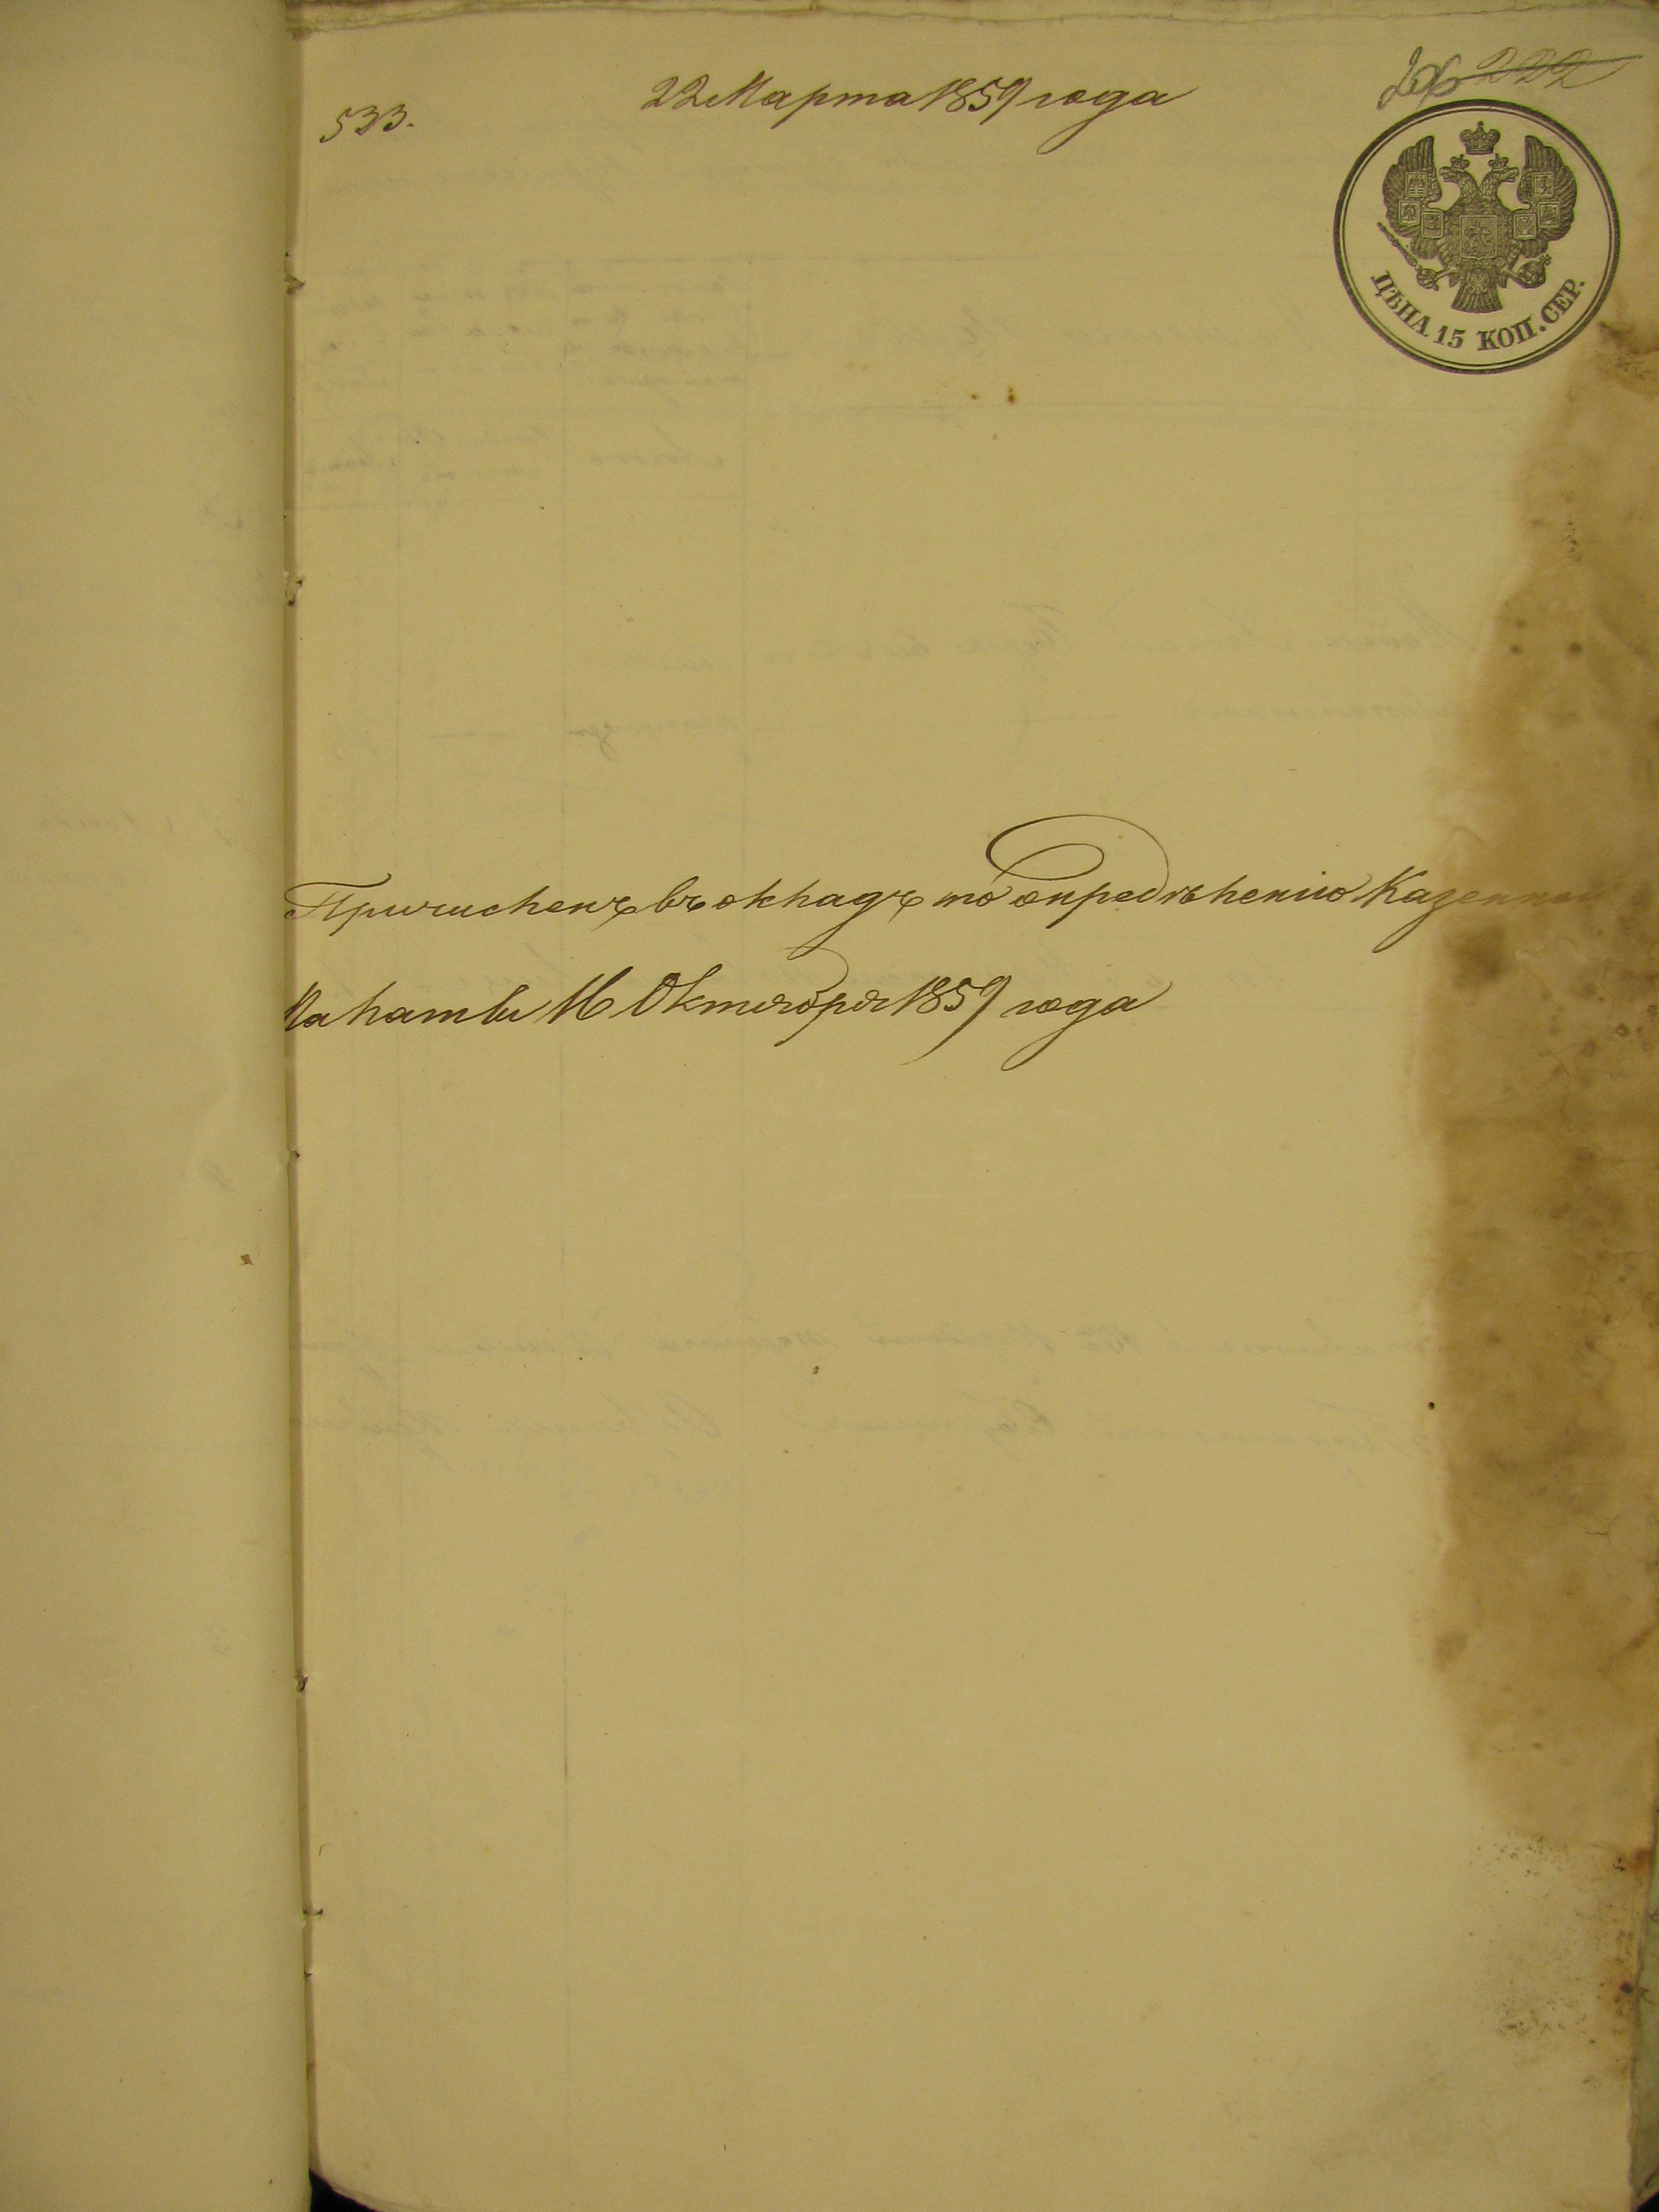 22 Марта 1859 года
533.
222
ЦѢНА 15 КОП. СЕР.
Причисленъ въ окладъ по опредѣленію Казенной
Палаты 16 Октября 1859 года